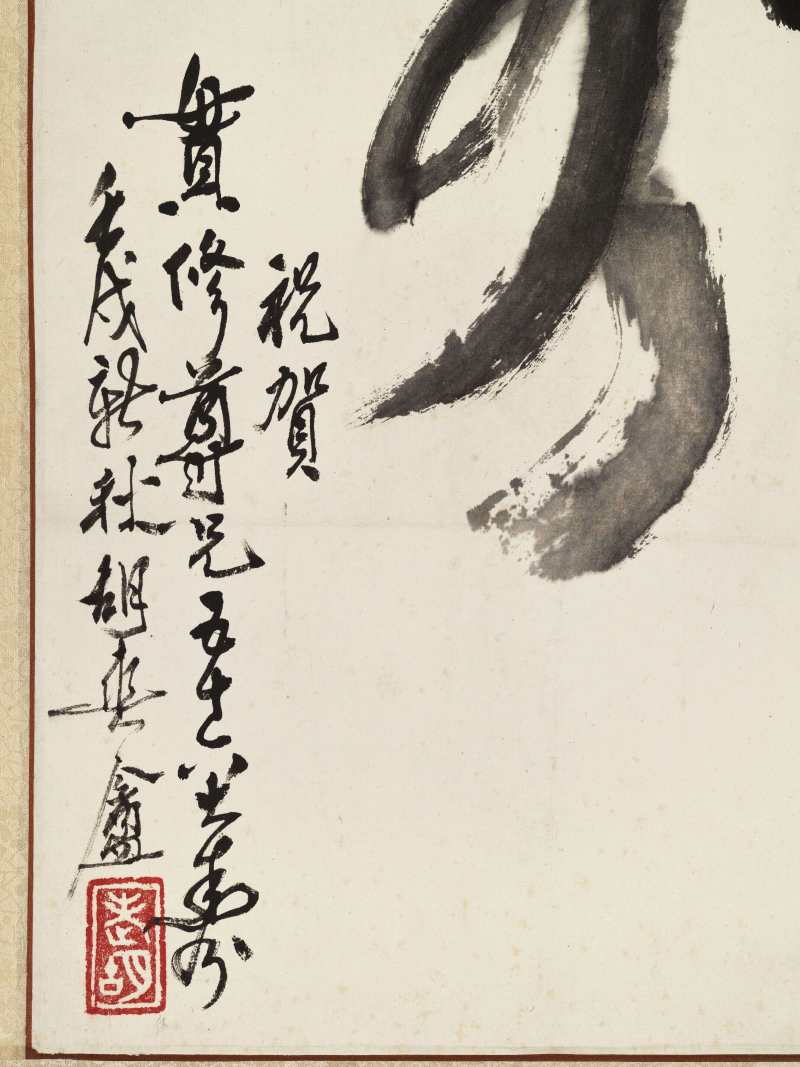 祝賀
貫修尊兄五十六大壽
壬戌新秋胡爽盦
老胡